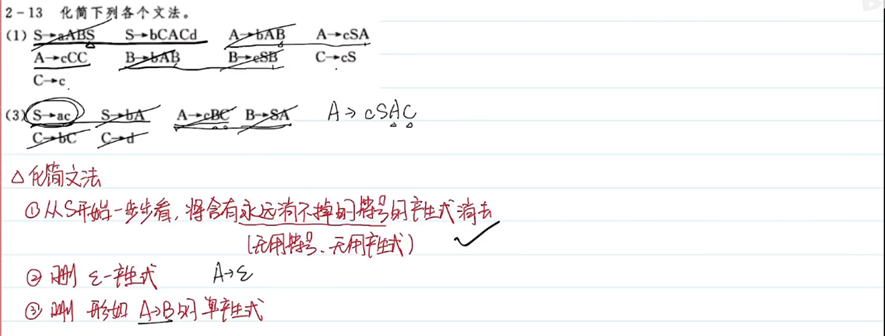 2-13 化简下列各个文法。
(1) S→aABS S→bCACd A→bAB A→cSA
A→cCC B→bAB B→cSB C→cS
C→c
(3) S→ac S→bA A→cBC B→SA A→cSAC
C→bC C→d
△化简文法
①从S开始一步步看,将含有永远消不掉的符号的产生式消去
(无用符号、无用产生式) ✓
②删 ε-产生式 A→ε
③删 形如 A→B的单产生式